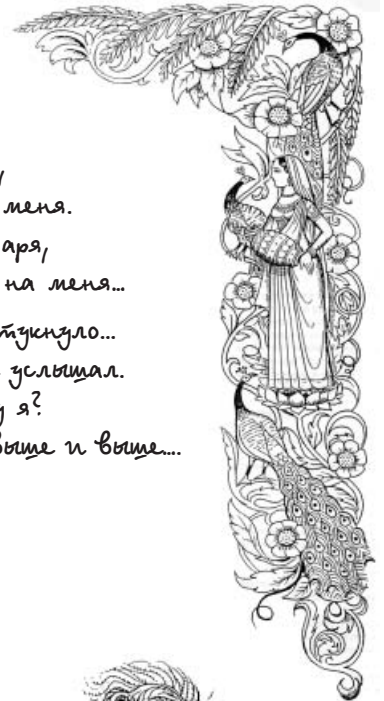 ,
меня.
аря,
на меня...
тукнуло...
услышал.
у я?
выше и выше....